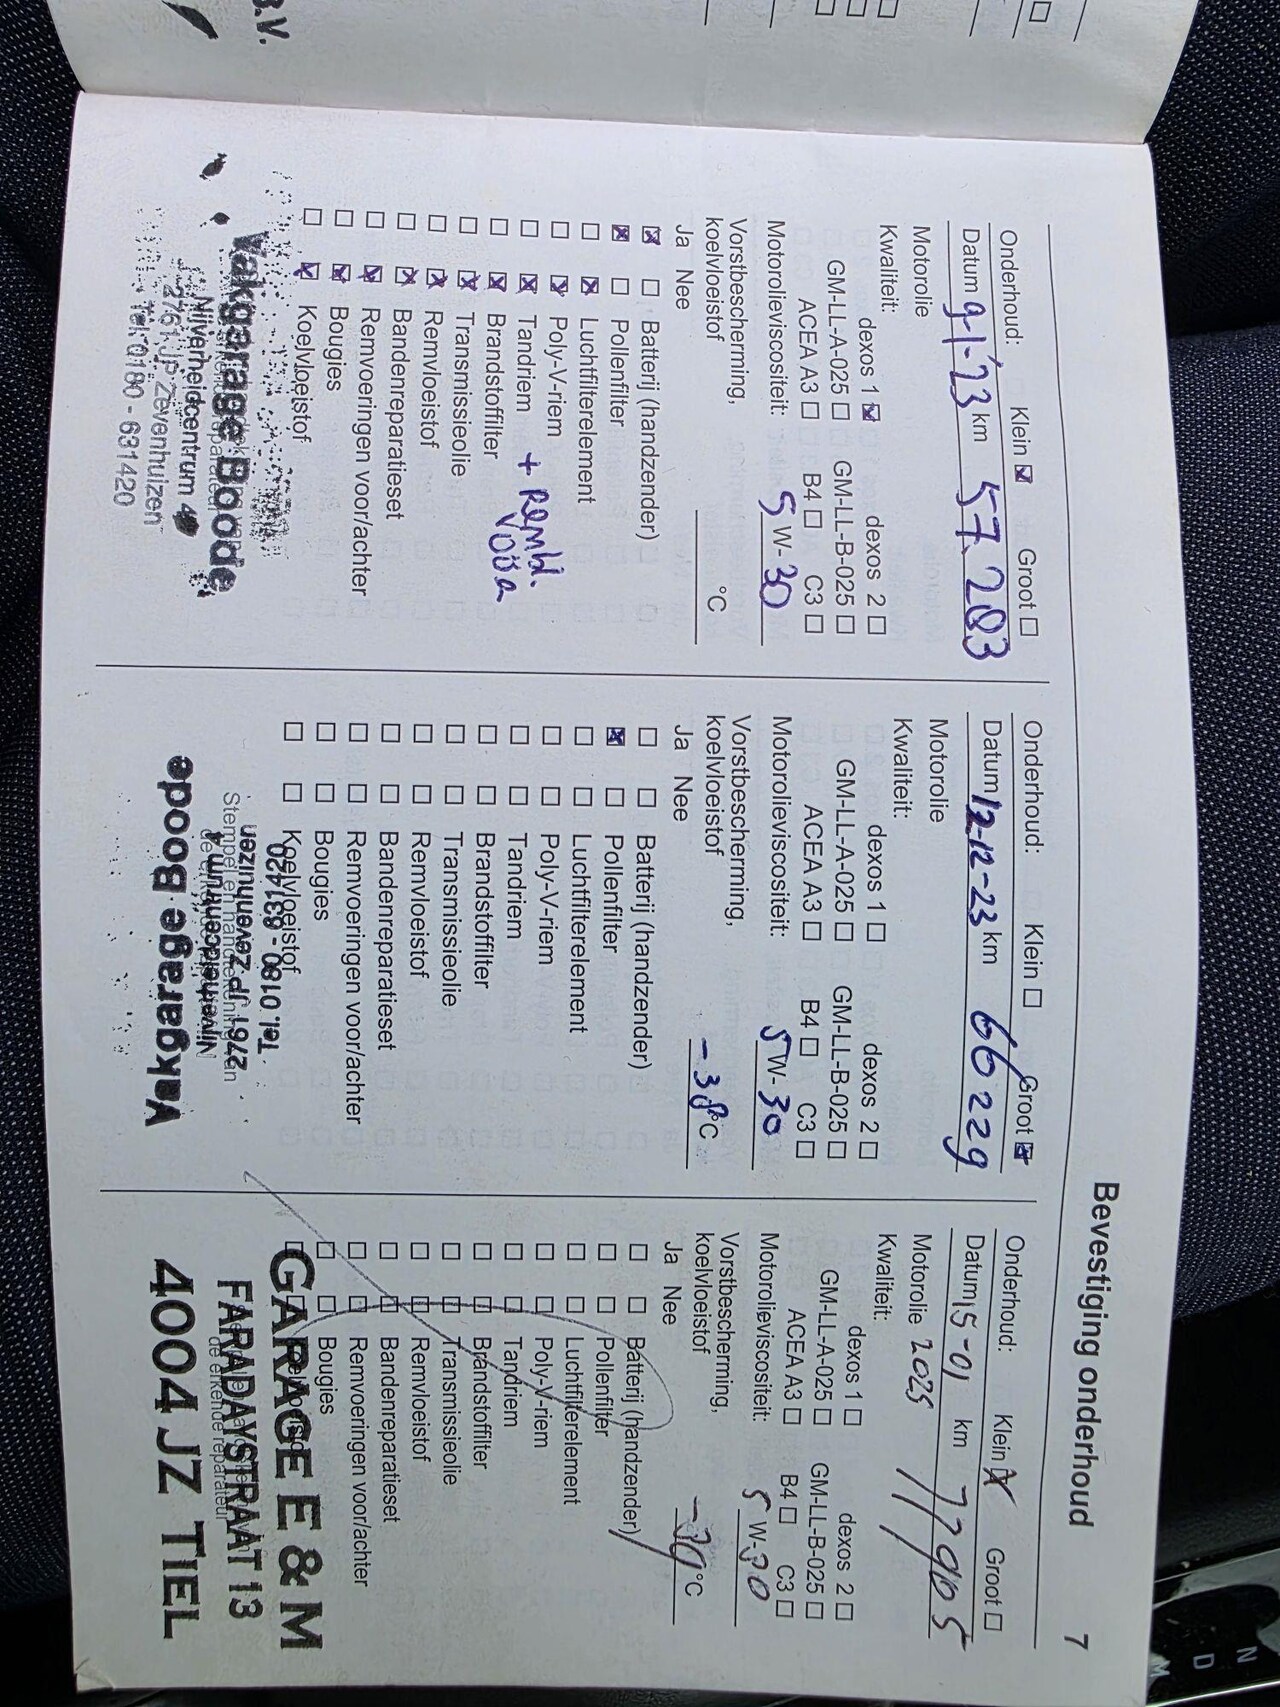 B.V.
Bevestiging onderhoud 7
Onderhoud: Klein ☒ Groot ☐
Datum 9-1-'23 km 57.283
Motorolie
Kwaliteit:
dexos 1 ☒ dexos 2 ☐
GM-LL-A-025 ☐ GM-LL-B-025 ☐
ACEA A3 ☐ B4 ☐ C3 ☐
Motorolieviscositeit: 5 W- 30
Vorstbescherming,
koelvloeistof °C
Ja Nee
☒ ☐ Batterij (handzender)
☒ ☐ Pollenfilter
☐ ☒ Luchtfilterelement
☐ ☒ Poly-V-riem
☐ ☒ Tandriem + Rembl.
☐ ☒ Brandstoffilter vooa
☐ ☒ Transmissieolie
☐ ☒ Remvloeistof
☐ ☒ Bandenreparatieset
☐ ☒ Remvoeringen voor/achter
☐ ☒ Bougies
☐ ☒ Koelvloeistof
Vakgarage Boode
Nijverheidcentrum 4
2761 JP Zevenhuizen
Tel. 0180 - 631420
Onderhoud: Klein ☐ Groot ☒
Datum 12-12-23 km 66229
Motorolie
Kwaliteit:
dexos 1 ☐ dexos 2 ☐
GM-LL-A-025 ☐ GM-LL-B-025 ☐
ACEA A3 ☐ B4 ☐ C3 ☐
Motorolieviscositeit: 5 W- 30
Vorstbescherming,
koelvloeistof -38 °C
Ja Nee
☐ ☐ Batterij (handzender)
☒ ☐ Pollenfilter
☐ ☐ Luchtfilterelement
☐ ☐ Poly-V-riem
☐ ☐ Tandriem
☐ ☐ Brandstoffilter
☐ ☐ Transmissieolie
☐ ☐ Remvloeistof
☐ ☐ Bandenreparatieset
☐ ☐ Remvoeringen voor/achter
☐ ☐ Bougies
☐ ☐ Koelvloeistof
Stempel en handtekening van
Vakgarage Boode
Nijverheidcentrum 4
2761 JP Zevenhuizen
Tel. 0180 - 631420
Onderhoud: Klein ☒ Groot ☐
Datum 15-01 km 77905
Motorolie 2025
Kwaliteit:
dexos 1 ☐ dexos 2 ☐
GM-LL-A-025 ☐ GM-LL-B-025 ☐
ACEA A3 ☐ B4 ☐ C3 ☐
Motorolieviscositeit: 5 W- 30
Vorstbescherming,
koelvloeistof -30 °C
Ja Nee
☐ ☐ Batterij (handzender)
☐ ☐ Pollenfilter
☐ ☐ Luchtfilterelement
☐ ☐ Poly-V-riem
☐ ☐ Tandriem
☐ ☐ Brandstoffilter
☐ ☐ Transmissieolie
☐ ☐ Remvloeistof
☐ ☐ Bandenreparatieset
☐ ☐ Remvoeringen voor/achter
☐ ☐ Bougies
☐ ☐ Koelvloeistof
de erkende reparateur
GARAGE E & M
FARADAYSTRAAT 13
4004 JZ TIEL
N
D
M